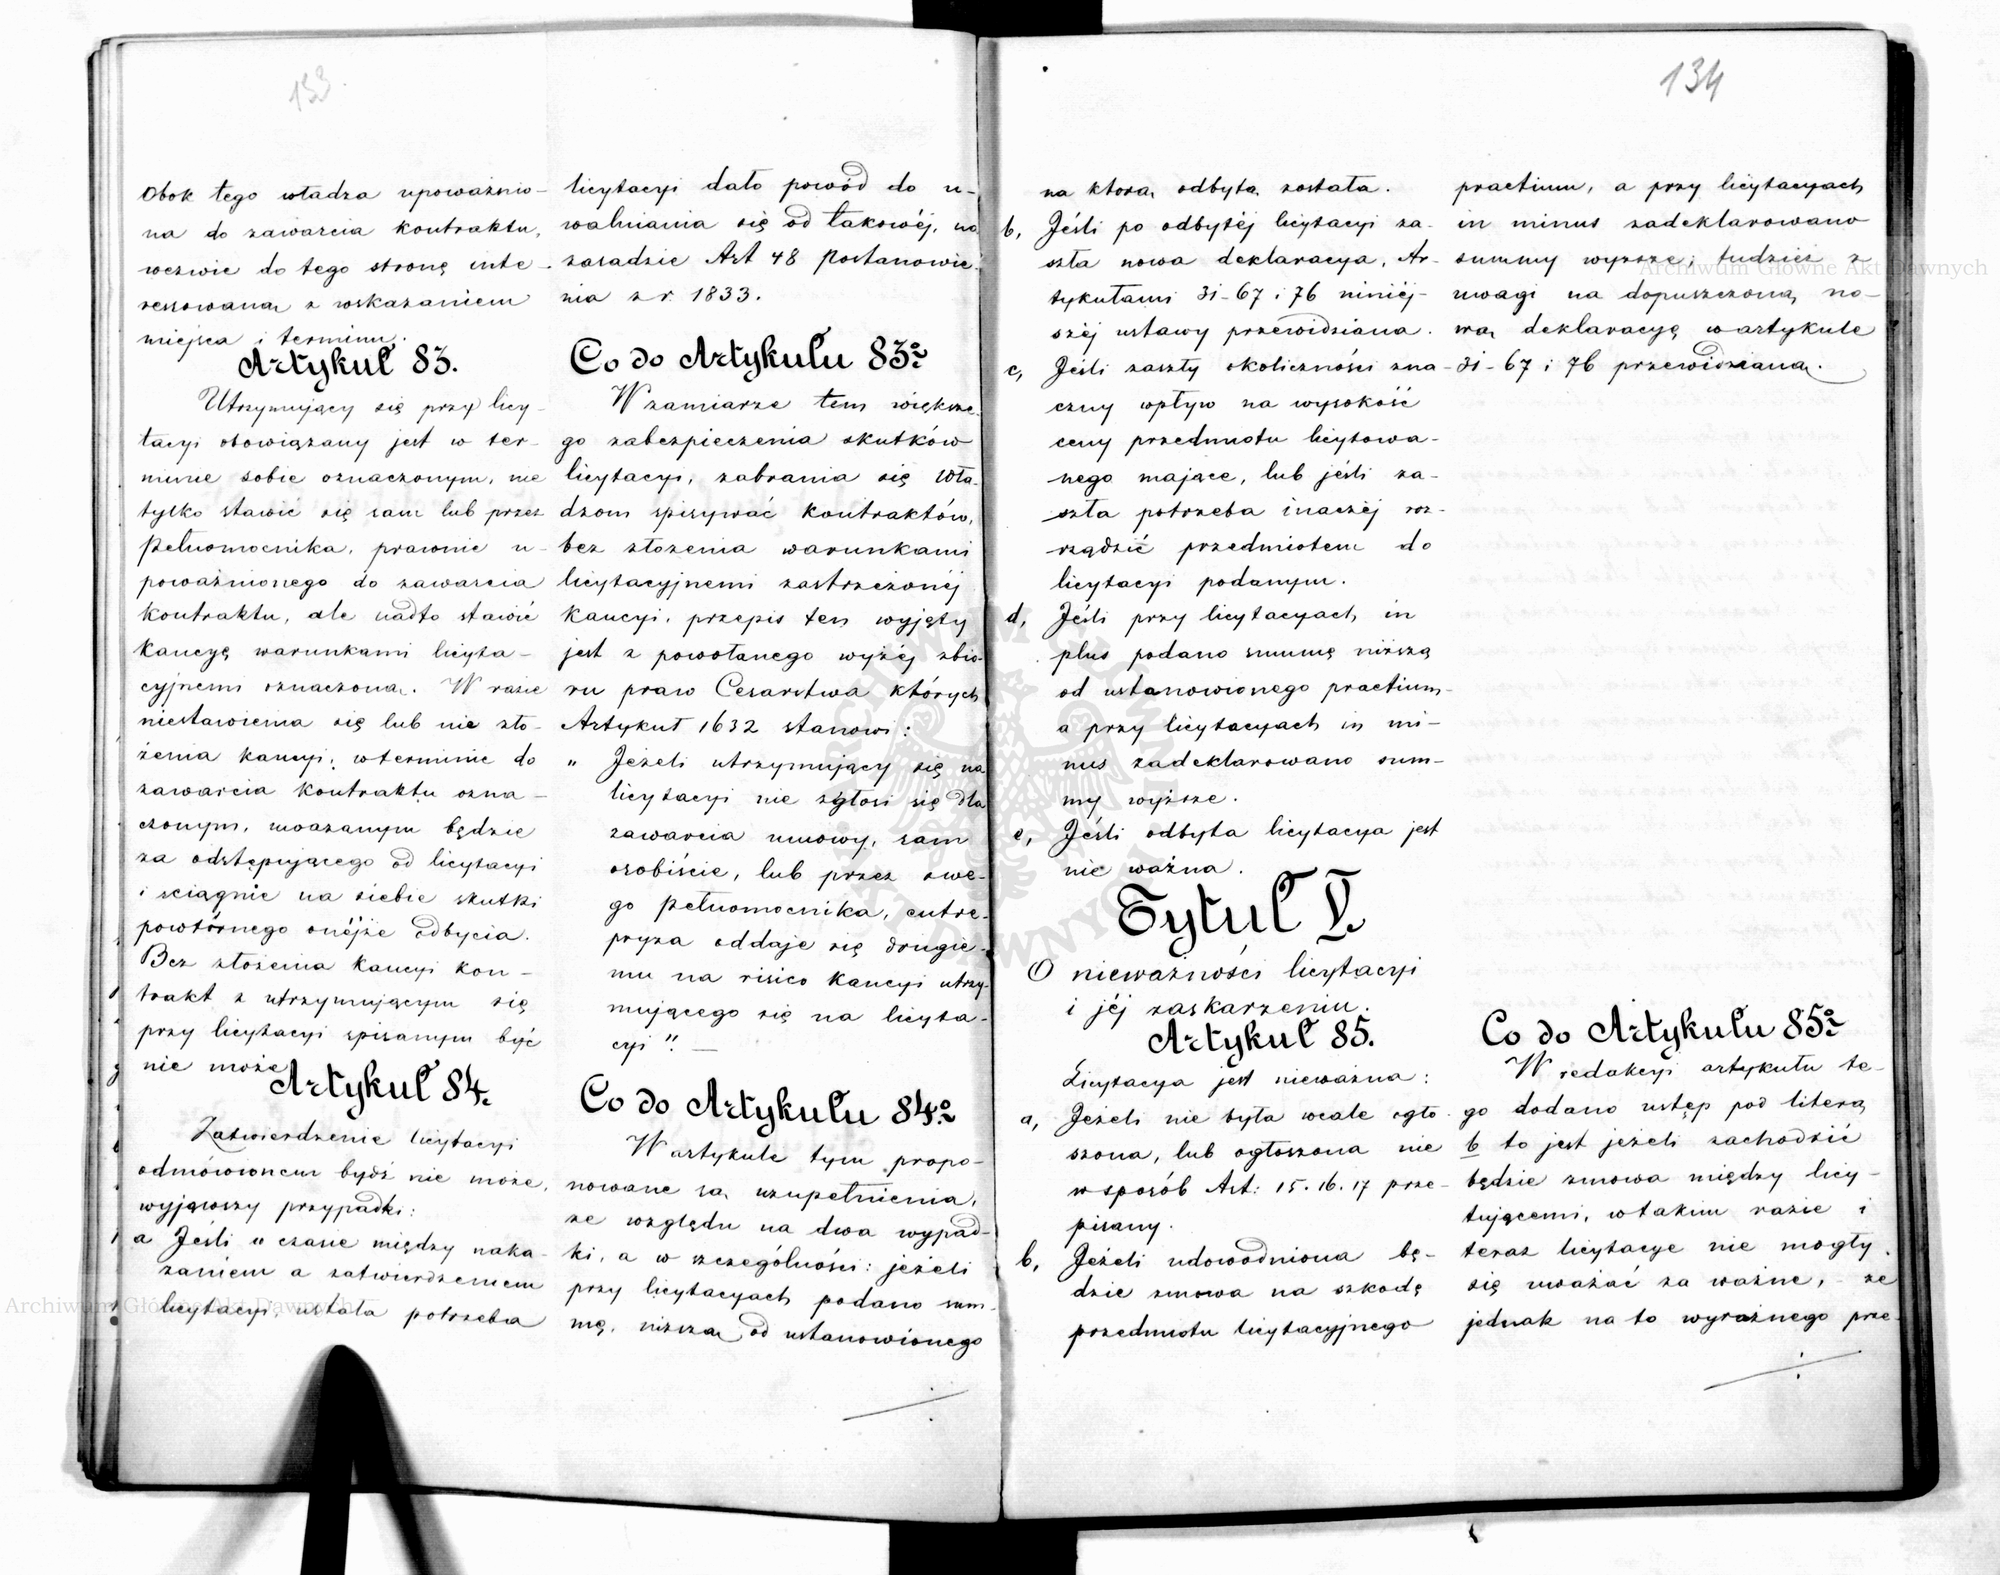 133.
Obok tego władza upoważnio-
na do zawarcia kontraktu,
wezwie do tego stronę inte-
ressowaną z wskazaniem
miejsca i terminu.
Artykuł 83.
Utrzymujący się przy licy-
tacyi obowiązany jest w ter-
minie sobie oznaczonym, nie
tylko stawić się sam lub przez
Pełnomocnika, prawnie u-
poważnionego do zawarcia
kontraktu, ale nadto stawić
kaucyę warunkami licyta-
cyjnemi oznaczoną. W razie
niestawienia się lub nie zło-
żenia kaucyi, w terminie do
zawarcia kontraktu ozna-
czonym, uważanym będzie
za odstępującego od licytacyi
i sciągnie na siebie skutki
powtórnego onéjże odbycia.
Bez złożenia kaucyi kon-
trakt z utrzymującym się
przy licytacyi spisanym być
nie może
Artykuł 84.
Zatwierdzenie licytacyi
odmówionem bydź nie może,
wyjąwszy przypadki:
a Jeśli w czasie między naka-
zaniem a zatwierdzeniem
licytacyi, ustała potrzeba
licytacyi dało powód do u-
walniania się od takowéj, na
zasadzie Art 48 Postanowie-
nia z r. 1833.
Co do Artykułu 83o
W zamiarze tem większe-
go zabezpieczenia skutków
licytacyi, zabrania się Wła-
dzom spisywać kontraktów,
bez złożenia warunkami
licytacyjnemi zastrzeżonéj
kaucyi, przepis ten wyjęty
jest z powołanego wyżéj zbio-
ru praw Cesarstwa których
Artykuł 1632 stanowi:
„ Jeżeli utrzymujący się na
licytacyi nie zgłosi się dla
zawarcia umowy, sam
osobiście, lub przez swe-
go Pełnomocnika, entre-
pryza oddaje się drugie-
mu na risico kaucyi utrzy-
mującego się na licyta-
cyi". —
Co do Artykułu 84o
W artykule tym propo-
nowane są uzupełnienia,
ze względu na dwa wypad-
ki, a w szczególności: jeżeli
przy licytacyach podano sum-
mę, niższą od ustanowionego
134
na którą odbytą została.
b, Jeśli po odbytéj licytacyi za-
szła nowa deklaracya, Ar-
tykułami 31-67 i 76 niniéj-
széj ustawy przewidziana.
c, Jeśli zaszły okoliczności zna-
czny wpływ na wysokość
ceny przedmiotu licytowa-
nego mające, lub jeśli za-
szła potrzeba inaczéj roz-
rządzić przedmiotem do
licytacyi podanym.
d, Jeśli przy licytacyach in
plus podano summę niższą
od ustanowionego praetium-
a przy licytacyach in mi-
nus zadeklarowano sum-
my wyższe.
e, Jeśli odbyta licytacya jest
nie ważna.
Tytuł V.
O nieważności licytacyi
i jéj zaskarzeniu.
Artykuł 85.
Licytacya jest nieważna:
a, Jeżeli nie była wcale ogło-
szona, lub ogłoszona nie
w sposób Art: 15. 16. 17 prze-
pisany.
b, Jeżeli udowodniona bę-
dzie zmowa na szkodę
przedmiotu licytacyjnego
praetium, a przy licytacyach
in minus zadeklarowano
summy wyższe; tudzież z
uwagi na dopuszczoną no-
wą deklaracyę w artykule
31-67 i 76 przewidzianą.
Co do Artykułu 85o
W redakcyi artykułu te-
go dodano ustęp pod literą
b to jest jeżeli zachodzić
będzie zmowa między licy-
tującemi, w takim razie i
teraz licytacye nie mogły
się uważać za ważne, - ze
jednak na to wyraźnego prze-
Archiwum Główne Akt Dawnych
Archiwum Główne Akt Dawnych